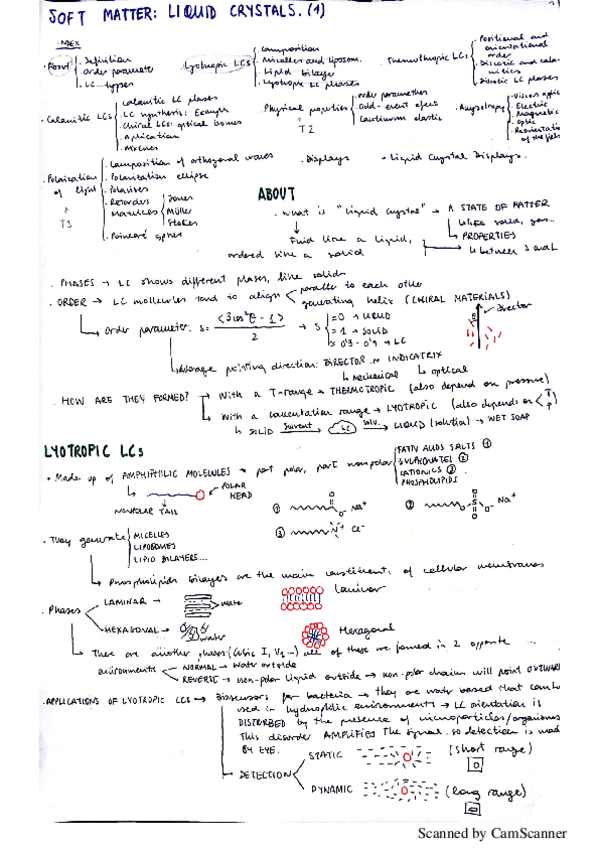 SOFT MATTER: LIQUID CRYSTALS. (1)
INDEX
Definition
order parameter
LC types
Lyotropic LCs
composition
Micelles and liposom.
Lipid bilayer
Lyotropic LC phases
Thermotropic LCs
Positional and
orientational
order
Discotic and cala-
mitics
Discotic LC phases
Calamitic LCs
Calamitic LC phases
LC synthesis: Example
Chiral LCs: optical isomers
Aplication
Mixtures
Physical properties
+
T2
order parameters
Odd-event efect
Continuum elastic
Anysotropy
Electric
Magnetic
Optic
Reorientation
of the fiels
Polarization
of light
+
T3
Composition of orthogonal waves
Polarization ellipse
Polarisers
Retarders
Matrices
Jones
Müller
Stokes
Poincaré sphere
Displays
Liquid Crystal Displays.
ABOUT
What is "Liquid Crystal" → A STATE OF MATTER
like solid, gas...
→ PROPERTIES
↳ between S and L
Fluid like a liquid,
ordered like a solid
. PHASES → LC shows different phases, like solid
. ORDER → LC molecules tend to align
parallel to each other
generating helix (CHIRAL MATERIALS)
→ order parameter: S = <3cos²θ - 1> / 2 → S
= 0 → LIQUID
= 1 → SOLID
≈ 0'3 - 0'9 → LC
Director
→ Average pointing direction: DIRECTOR ~ INDICATRIX
↳ mechanical ↳ optical
. HOW ARE THEY FORMED? → With a T-range → THERMOTROPIC (also depend on pressure)
→ With a concentration range → LYOTROPIC (also depends on < T P )
↳ SOLID solvent → LC solv. → LIQUID (solution) → WET SOAP
LYOTROPIC LCs
• Made up of AMPHIPHILIC MOLECULES → part polar, part nonpolar
FATTY ACIDS SALTS ①
SULFONATES ②
CATIONICS ③
PHOSPHOLIPIDS
POLAR
HEAD
NONPOLAR TAIL
① O⁻ Na⁺
② O S O O⁻ Na⁺
③ N⁺ Cl⁻
. They generate
MICELLES
LIPOSOMES
LIPID BILAYERS...
↳ Phospholipids bilayers are the main constituent of cellular membranes
. Phases
LAMINAR → water
Laminar
HEXAGONAL → water
Hexagonal
↳ There are another phases (Cubic I, V1...) all of these are formed in 2 opposite
environments
NORMAL → Water outside
REVERSE → non-polar liquid outside → non-polar chains will point OUTWARD
. APPLICATIONS OF LYOTROPIC LCs → Biosensors for bacteria → they are water based that can be
used in hydrophilic environments → LC orientation is
DISTURBED by the presence of microparticles/organisms
This disorder AMPLIFIES the signal, so detection is made
BY EYE.
→ DETECTION
STATIC (short range)
DYNAMIC (long range)
Scanned by CamScanner